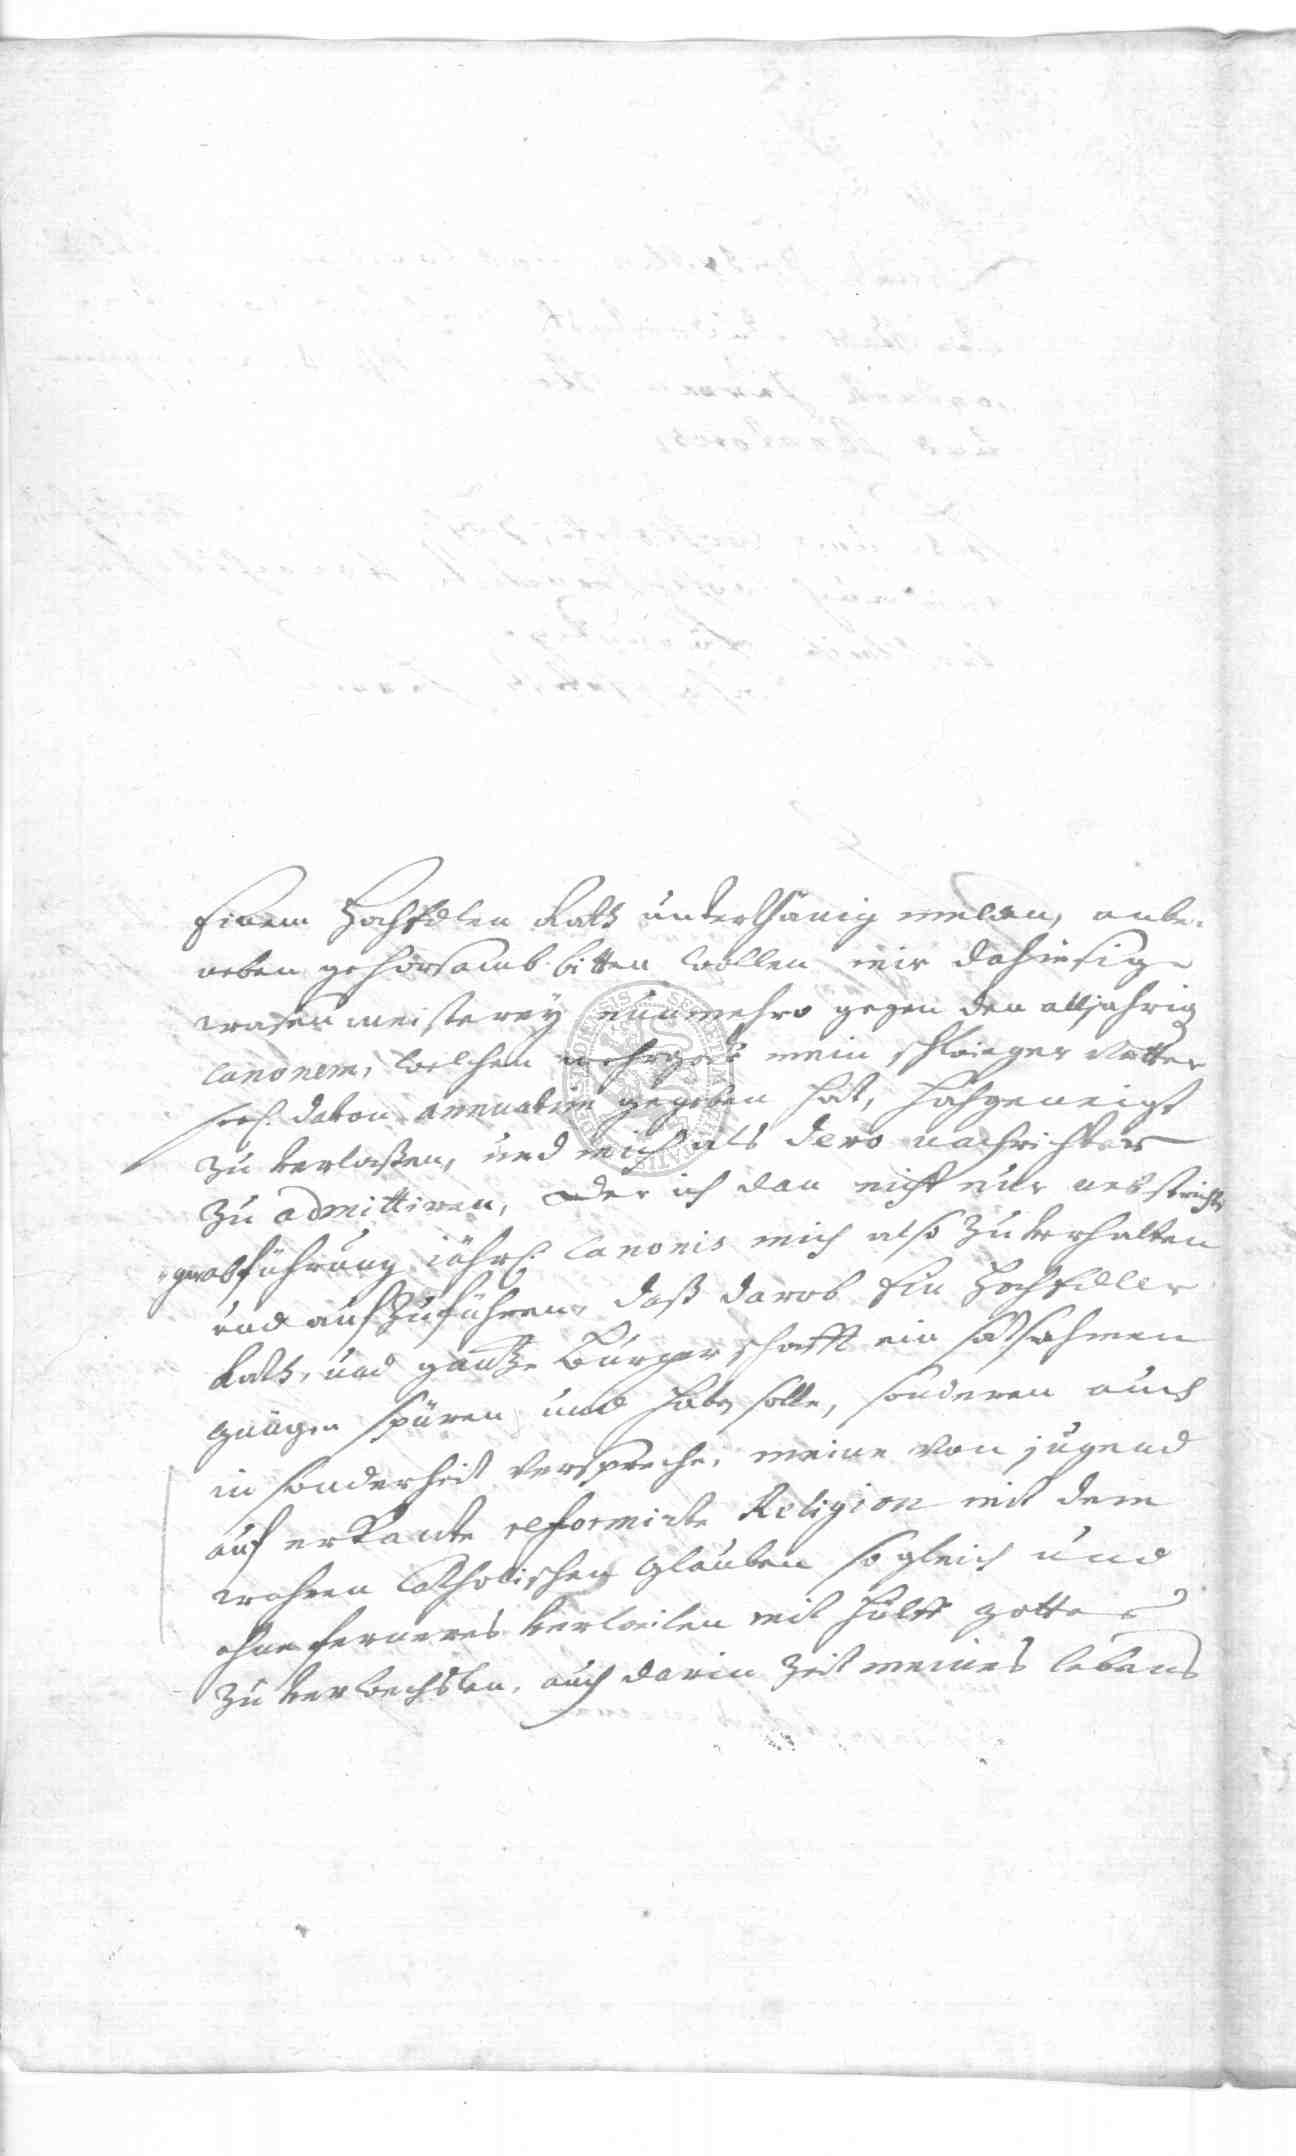 Einem HochEdlen Rath underthänig melden, anbe-
neben gehorsamb bitten wollen mir dahiesige
wasenmeisterey nunmehro gegen den alljährig
Canonem, welchen mein schwieger Vatter
davon annuatim gegeben hat, hochgeneigt
zu verlaßen, und mich als dero nachrichter
zu admittiren, der ich dan nicht nur
abführung jährl. Canonis mich also zu verhalten
und aufzuführen, daß darob Ein HochEdler
Rath, und gantze Burgerschafft ein sattsahmes
gnügen spüren und haben solle, sonderen auch
in sonderheit verspreche, meine von jugend
auf erkante reformirte Religion mit dem
wahren Catholischen glauben so gleich und
ohne ferneres verweilen mit hülff gottes
zu verwechslen, auch darin zeit meines lebens